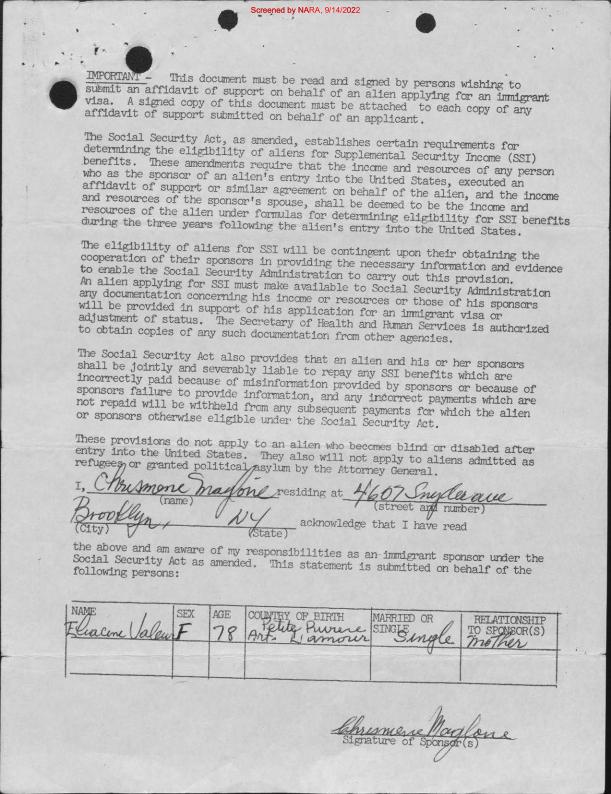 Screened by NARA, 9/14/2022
IMPORTANT - This document must be read and signed by persons wishing to
submit an affidavit of support on behalf of an alien applying for an immigrant
visa. A signed copy of this document must be attached to each copy of any
affidavit of support submitted on behalf of an applicant.
The Social Security Act, as amended, establishes certain requirements for
determining the eligibility of aliens for Supplemental Security Income (SSI)
benefits. These amendments require that the income and resources of any person
who as the sponsor of an alien's entry into the United States, executed an
affidavit of support or similar agreement on behalf of the alien, and the income
and resources of the sponsor's spouse, shall be deemed to be the income and
resources of the alien under formulas for determining eligibility for SSI benefits
during the three years following the alien's entry into the United States.
The eligibility of aliens for SSI will be contingent upon their obtaining the
cooperation of their sponsors in providing the necessary information and evidence
to enable the Social Security Administration to carry out this provision.
An alien applying for SSI must make available to Social Security Administration
any documentation concerning his income or resources or those of his sponsors
will be provided in support of his application for an immigrant visa or
adjustment of status. The Secretary of Health and Human Services is authorized
to obtain copies of any such documentation from other agencies.
The Social Security Act also provides that an alien and his or her sponsors
shall be jointly and severably liable to repay any SSI benefits which are
incorrectly paid because of misinformation provided by sponsors or because of
sponsors failure to provide information, and any incorrect payments which are
not repaid will be withheld from any subsequent payments for which the alien
or sponsors otherwise eligible under the Social Security Act.
These provisions do not apply to an alien who becomes blind or disabled after
entry into the United States. They also will not apply to aliens admitted as
refugees or granted political asylum by the Attorney General.
I, Chrismene Maglone residing at 4607 Snyder ave
(name) (street and number)
Brooklyn, NY acknowledge that I have read
(City) (State)
the above and am aware of my responsibilities as an immigrant sponsor under the
Social Security Act as amended. This statement is submitted on behalf of the
following persons:
NAME SEX AGE COUNTRY OF BIRTH MARRIED OR SINGLE RELATIONSHIP TO SPONSOR(S)
Eliacine Valeur F 78 Petite Riviere Art. L'amour Single Mother
Chrismene Maglone
Signature of Sponsor(s)